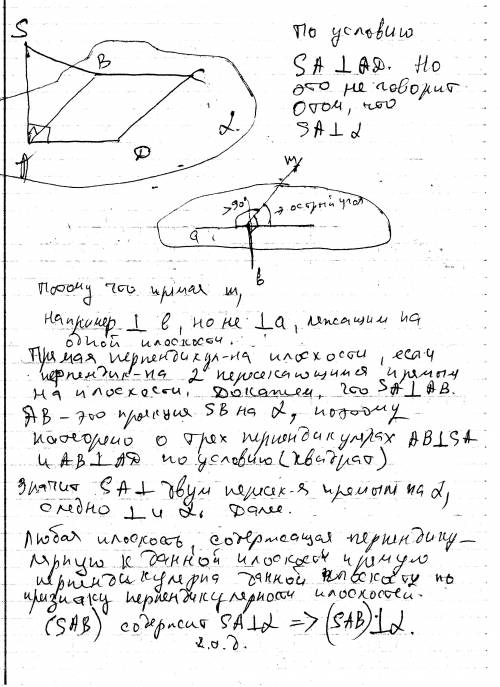 S
B
C
A
D
α
По условию
SA⊥AD. Но
это не говорит
о том, что
SA⊥α
m
>90°
острый угол
a
b
Потому что прямая m,
например ⊥ b, но не ⊥a, лежащим на
одной плоскости.
Прямая перпендикул-на плоскости, если
перпендик-на 2 пересекающимся прямым
на плоскости. Докажем, что SA⊥AB.
AB – это проекция SB на α, поэтому
по теореме о трех перпендикулярах AB⊥SA
и AB⊥AD по условию (квадрат)
Значит SA⊥ двум пересек-я прямым на α,
следно ⊥ и α. Далее.
Любая плоскость, содержащая перпендику-
лярную к данной плоскости прямую
перпендикулярна данной плоскости по
признаку перпендикулярности плоскостей.
(SAB) содержит SA⊥α => (SAB)⊥α.
ч.т.д.